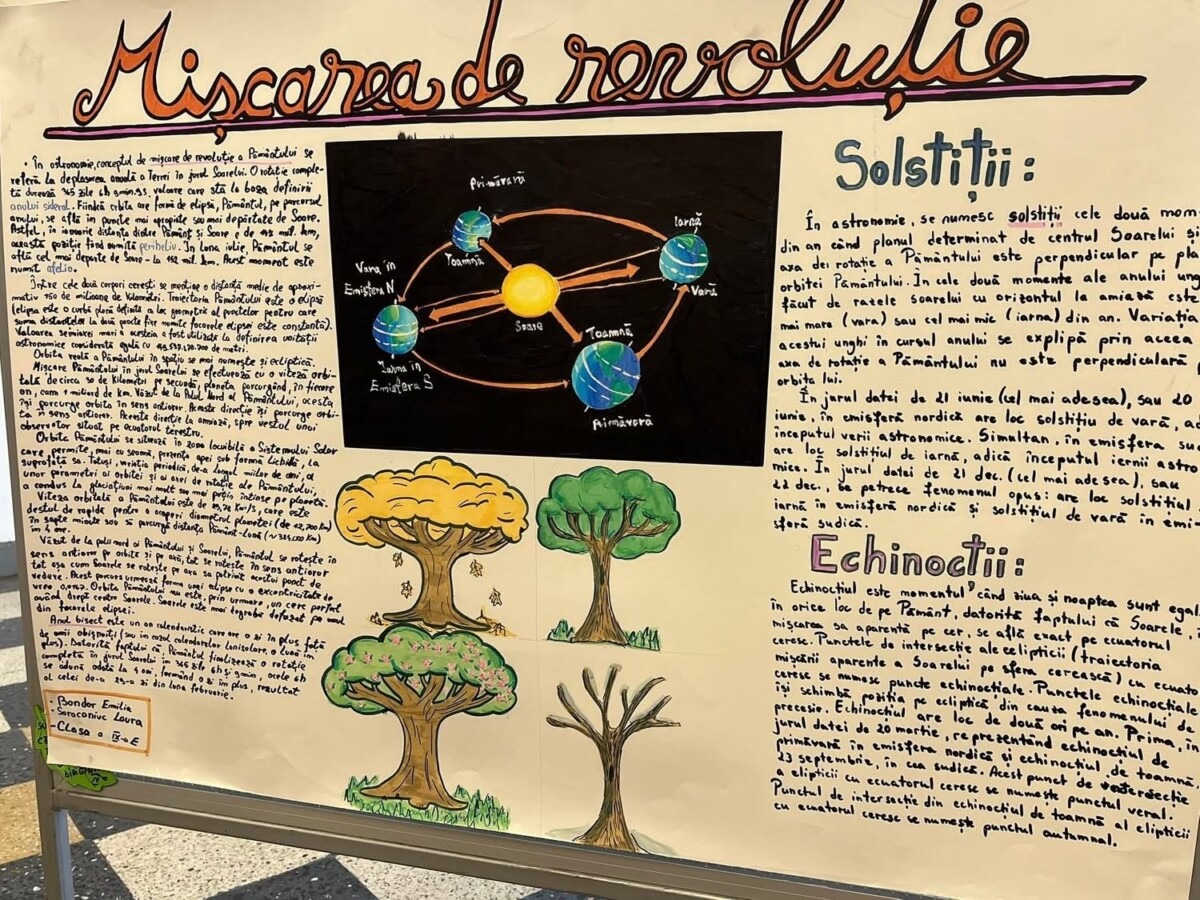 Mișcarea de revoluție
• În astronomie, conceptul de mișcare de revoluție a Pământului se
referă la deplasarea anuală a Terrei în jurul Soarelui. O rotație comple-
tă durează 365 zile 6h 9min. 9s. valoare care stă la baza definirii
anului sideral. Fiindcă orbita are formă de elipsă, Pământul, pe parcursul
anului, se află în puncte mai apropiate sau mai depărtate de Soare.
Astfel, în ianuarie distanța dintre Pământ și Soare e de 147 mil. km,
această poziție fiind numită periheliu. În luna iulie, Pământul se
află cel mai departe de Soare - la 152 mil. km. Acest moment este
numit afeliu.
Între cele două corpuri cerești se menține o distanță medie de aproxi-
mativ 150 de milioane de kilometri. Traiectoria Pământului este o elipsă
(elipsa este o curbă plană definită a loc geometric al punctelor pentru care
suma distanțelor la două puncte fixe numite focarele elipsei este constantă).
Valoarea semiaxei mari a acesteia a fost utilizată la definirea unității
astronomice considerată egală cu de metri.
Orbita reală a Pământului în spațiu se mai numește și ecliptică.
Mișcare Pământului în jurul Soarelui se efectuează cu o viteză orbi-
tală de circa 30 de kilometri pe secundă, planeta parcurgând, în fiecare
an, cam 1 miliard de km. Văzut de la Polul Nord al Pământului, acesta
își parcurge orbita în sens antiorar. Aceste direcție își parcurge orbi-
ta în sens antiorar. Aceste direcție la amiază, spre vestul unui
observator situat pe ecuatorul terestru.
Orbita Pământului se situează în zona locuibilă a Sistemului Solar
care permite, mai cu seamă, prezența apei sub formă lichidă, la
suprafața sa. Totuși, variația periodică, de-a lungul miilor de ani, a
unor parametri ai orbitei și ai axei de rotație ale Pământului,
a condus la glaciațiuni mai mult sau mai puțin întinse pe planetă.
Viteza orbitală a Pământului este de 29,78 km/s, care este
destul de rapidă pentru a acoperi diametrul planetei (de 12,700 km)
în șapte minute sau să parcurgă distanța Pământ-Lună (~384,000 km)
în 4 ore.
Văzut de la polul nord al Pământului și Soarelui, Pământul se rotește în
sens antiorar pe orbită și pe axă, tot se rotește în sens antiorar
tot așa cum Soarele se rotește pe axa sa potrivit acestui punct de
vedere. Acest parcurs urmează forma unei elipse cu o excentricitate de
vreo 0,017. Orbita Pământului nu este, prin urmare, un cerc perfect
având drept centru Soarele. Soarele este mai degrabă defazat pe unul
din focarele elipsei.
Anul bisect este un an calendaristic care are o zi în plus față
de anii obișnuiți (sau în cazul calendarelor lunisolare, o lună în
plus). Datorită faptului că, Pământul finalizează o rotație
completă în jurul Soarelui în 365 zile 6h și 9min, acele 6h
se adună odată la 4 ani, formând o zi în plus, rezultat
al celei de-a 29-a zi din luna februarie.
• Bondor Emilia
• Sorocaniuc Laura
- Clasa a IX-a E
Primăvară
Toamnă
Iarnă
Vară
Vara în
Emisfera N
Iarna în
Emisfera S
Soare
Toamnă
Primăvară
Solstiții:
În astronomie, se numesc solstiții cele două mom
din an când planul determinat de centrul Soarelui și
axa de rotație a Pământului este perpendicular pe pla
orbitei Pământului. În cele două momente ale anului ung
făcut de razele soarelui cu orizontul la amiază est
mai mare (vara) sau cel mai mic (iarna) din an. Variația
acestui unghi în cursul anului se explică prin aceea
axa de rotație a Pământului nu este perpendiculară p
orbita lui.
În jurul datei de 21 iunie (cel mai adesea), sau 20
iunie, în emisferă nordică are loc solstițiu de vară, ad
începutul verii astronomice. Simultan, în emisfera sud
are loc solstițiul de iarnă, adică începutul iernii astro
mice. În jurul datei de 21 dec. (cel mai adesea), sau
22 dec., se petrece fenomenul opus: are loc solstițiul
iarnă în emisferă nordică și solstițiul de vară în emi
sferă sudică.
Echinocții:
Echinocțiul este momentul când ziua și noaptea sunt egal
în orice loc de pe Pământ, datorită faptului că Soarele, î
mișcarea sa aparentă pe cer, se află exact pe ecuatorul
ceresc. Punctele de intersecție ale eclipticii (traiectoria
mișcării aparente a Soarelui pe sfera cerească) cu ecuato
ceresc se numesc puncte echinocțiale. Punctele echinocțiale
își schimbă poziția pe ecliptică din cauza fenomenului de
precesie. Echinocțiul are loc de două ori pe an. Prima, în
jurul datei de 20 martie, reprezentând echinocțiul de
primăvară în emisfera nordică și echinocțiul de toamnă
23 septembrie, în cea sudică. Acest punct de intersecție
a elipticii cu ecuatorul ceresc se numește punctul vernal.
Punctul de intersecție din echinocțiul de toamnă al elipticii
cu ecuatorul ceresc se numește punctul autumnal.